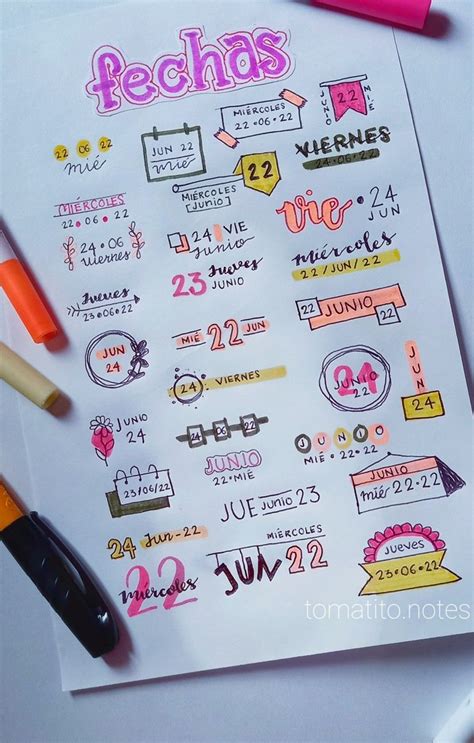 fechas
MIÉRCOLES
22·06·22
JUNIO
22
MIÉ
22 06 22
mié
JUN 22
mié
VIERNES
24·06·22
22
MIÉRCOLES
[Junio]
MIÉRCOLES
22·06·22
vie
·24
JUN
24·06
viernes
24 VIE
Junio
miércoles
22/JUN/22
23
Jueves
JUNIO
Jueves
23·06·22
22
JUNIO
22
MIÉ
22
JUN
JUN
24
JUNIO
24
22
JUN
24
24
VIERNES
JUNIO
24
24
06
22
JUNIO
MIÉ·22·22
JUNIO
22·MIÉ
23/06/22
JUNIO
mié 22·22
JUE Junio 23
24 Jun-22
MIÉRCOLES
JUN 22
Jueves
23·06·22
22
miércoles
tomatito.notes